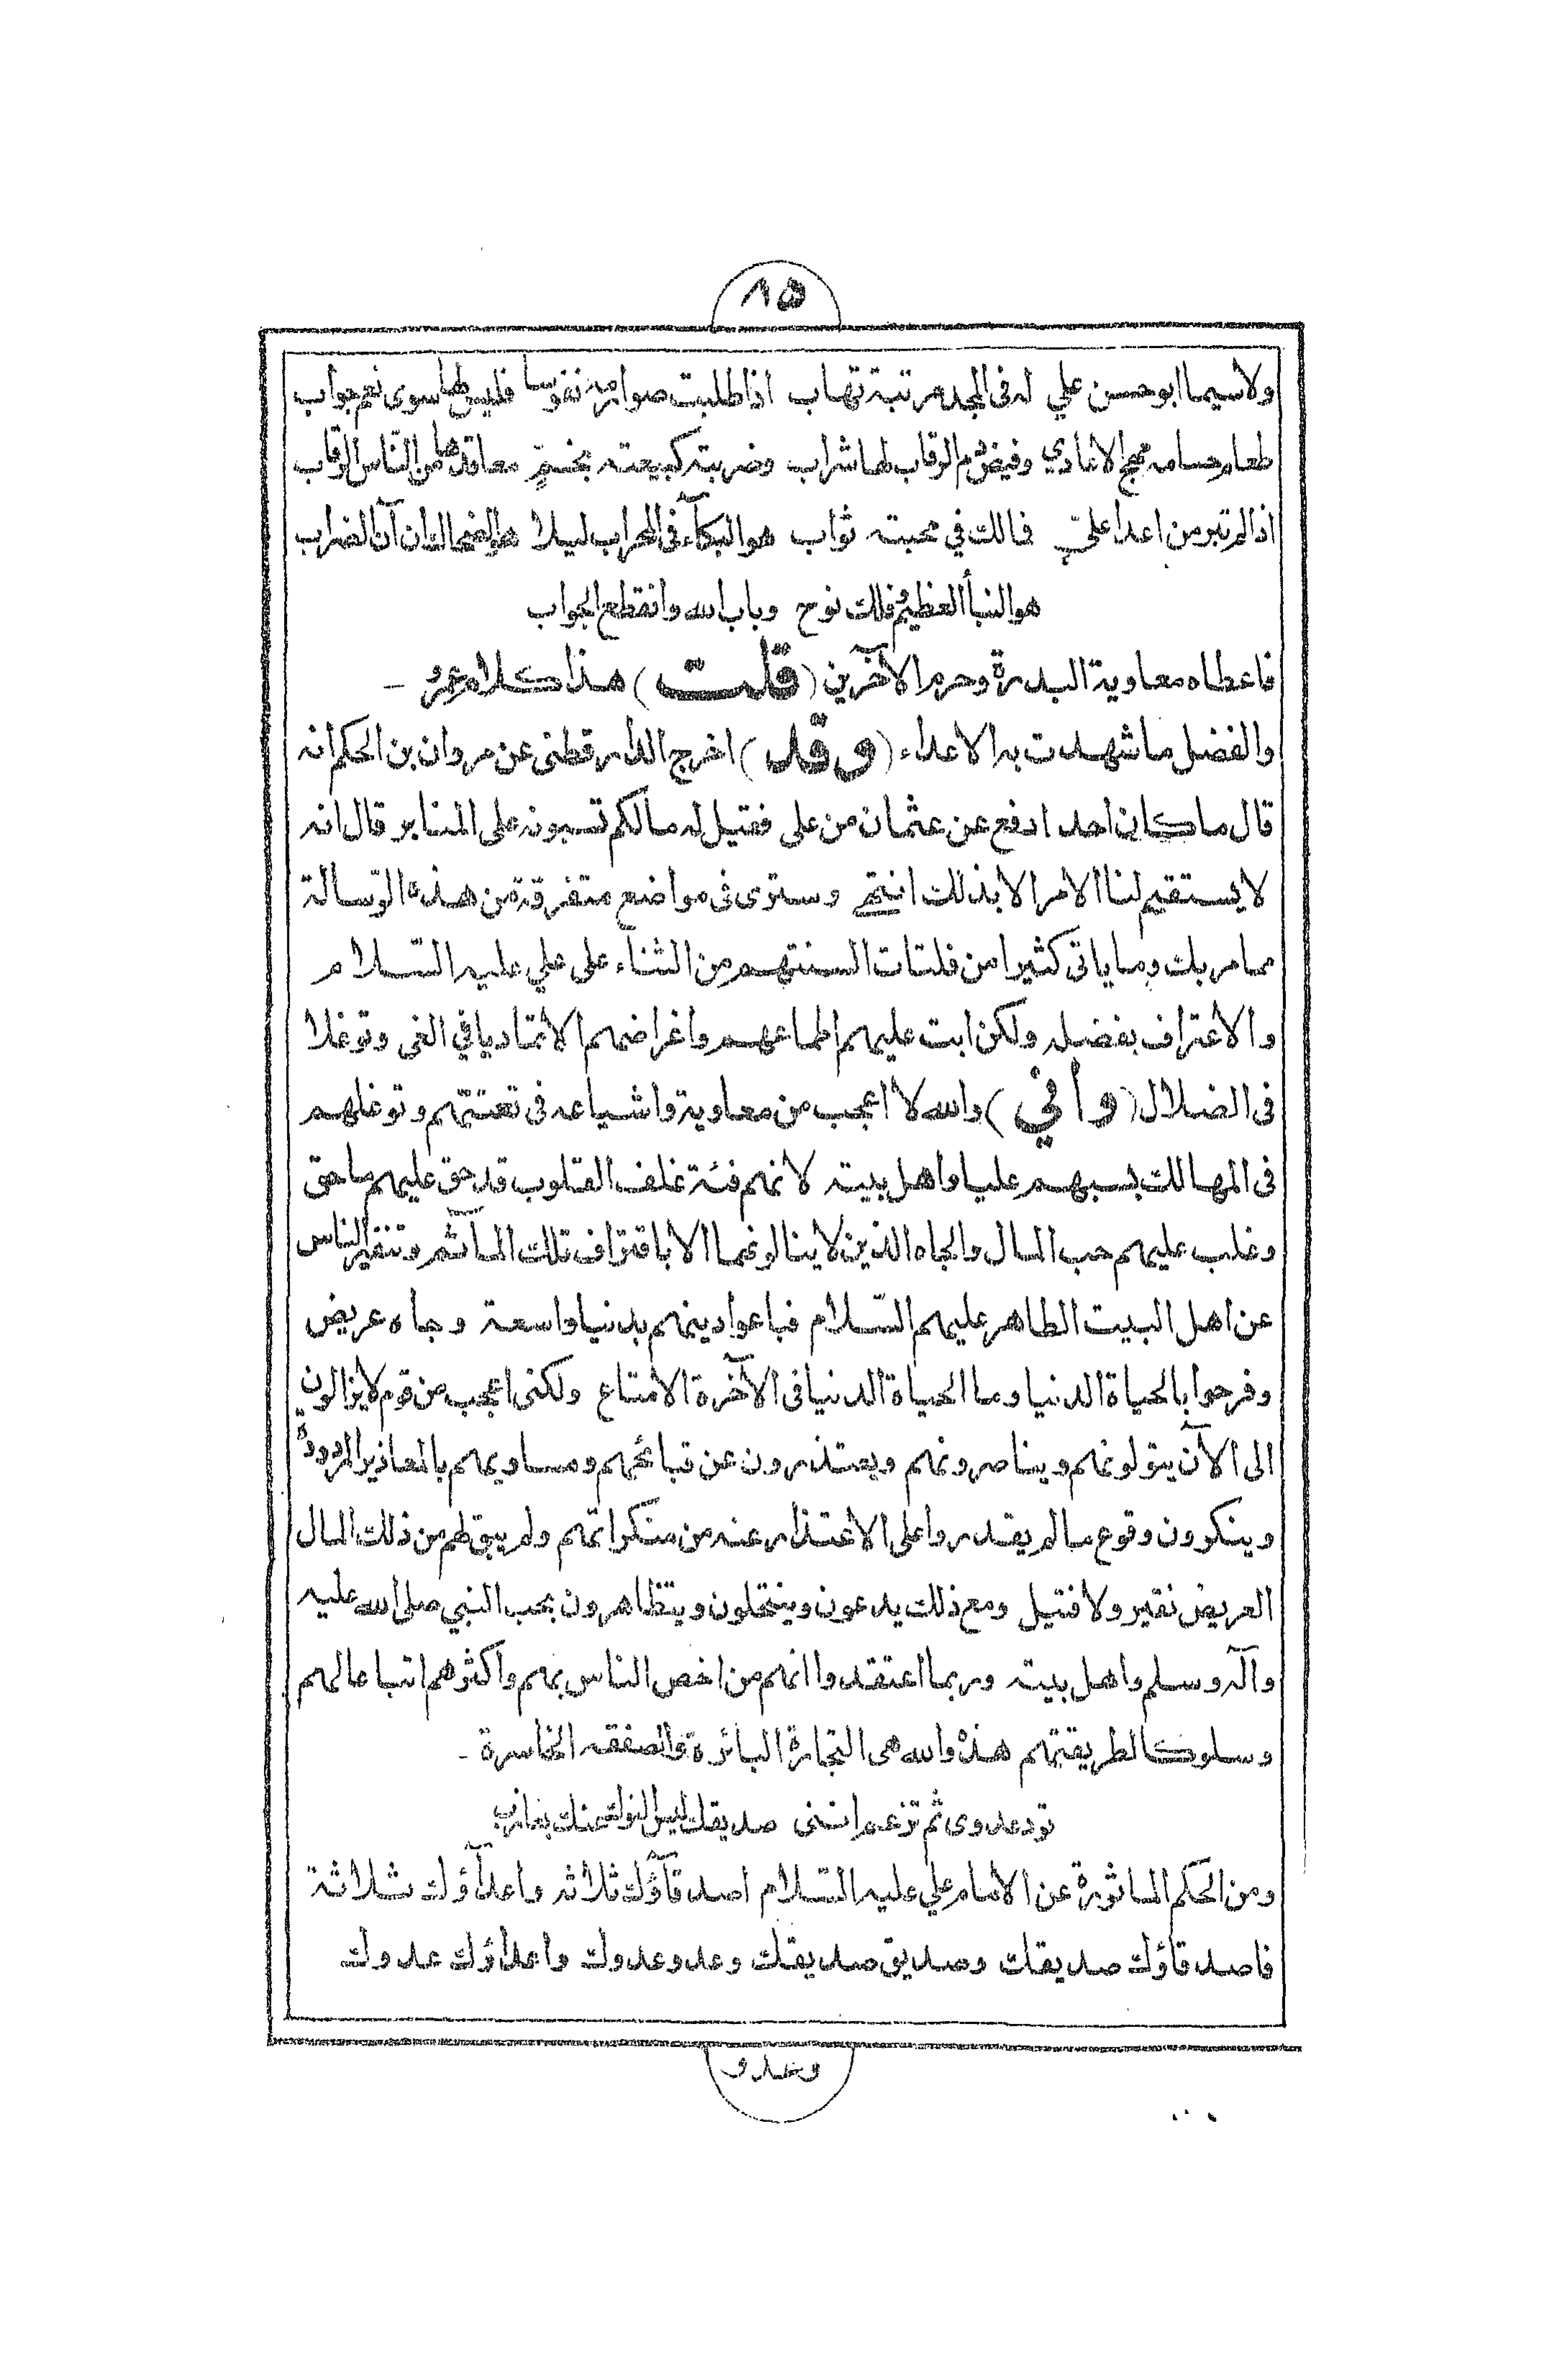 ١٥
ولاسيما ابوحسن علي له فى المجد مرتبة تهاب اذا طلبت صوارمه نفوسا فليس لها سوى نعم جواب
طعام حسامه مهج الاعادي وفيض دم الرقاب لها شراب وضربته كبيعته بخمٍّ معاقدها من الناس الرقاب
اذا لم تبر من اعدا علىّ فمالك في محبته ثواب هو البكآء فى المحراب ليلا هو الضحاك ان آن الضراب
هو النبأ العظيم وفلك نوح وباب الله وانقطع الجواب
فاعطاه معاوية البدرة وحرم الآخرين (قلت) هذا كلام عمرو –
والفضل ما شهدت به الاعداء (وقد) اخرج الدار قطنى عن مروان بن الحكم انه
قال ما كان احد ادفع عن عثمان من على فقيل له مالكم تسبونه على المنابر قال انه
لا يستقيم لنا الامر الا بذلك انتهى وسترى فى مواضع متفرقة من هذه الرّسالة
مما مر بك وما ياتى كثيرا من فلتات السنتهم من الثناء على علي عليه السّلام
والاعتراف بفضله ولكن ابت عليهم اطماعهم واغراضهم الا تماديا في الغى وتوغلا
فى الضلال (وأني) والله لا اعجب من معاوية واشياعه فى تعنتهم وتوغلهم
فى المهالك بسبهم عليا واهل بيته لانهم فئة غلف القلوب قد حق عليهم ما حق
وغلب عليهم حب المال والجاه الذين لا ينالونهما الا باقتراف تلك المآثم وتنفير الناس
عن اهل البيت الطاهر عليهم السّلام فباعوا دينهم بدنيا واسعة وجاه عريض
وفرحوا بالحياة الدنيا وما الحياة الدنيا فى الآخرة الا متاع ولكنى اعجب من قوم لا يزالون
الى الآن يتولونهم ويناصرونهم ويعتذرون عن قبائحهم ومساويهم بالمعاذير المردودة
وينكرون وقوع ما لم يقدروا على الاعتذار عنه من منكراتهم ولم يبق لهم من ذلك المال
العريض نقير ولا فتيل ومع ذلك يدعون وينتحلون ويتظاهرون بحب النبي صلى الله عليه
وآله وسلم واهل بيته وربما اعتقدوا انهم من اخص الناس بهم واكثرهم اتباعا لهم
وسلوكا لطريقتهم هذه والله هى التجارة البائرة والصفقه الخاسرة –
تود عدوى ثم تزعم اننى صديقك ليس النوك عنك بعازب
ومن الحكم الماثورة عن الامام علي عليه السّلام اصدقآؤك ثلاثه واعدآؤك ثلاثة
فاصدقاؤك صديقك وصديق صديقك وعدو عدوك واعداؤك عدوك
وعدو